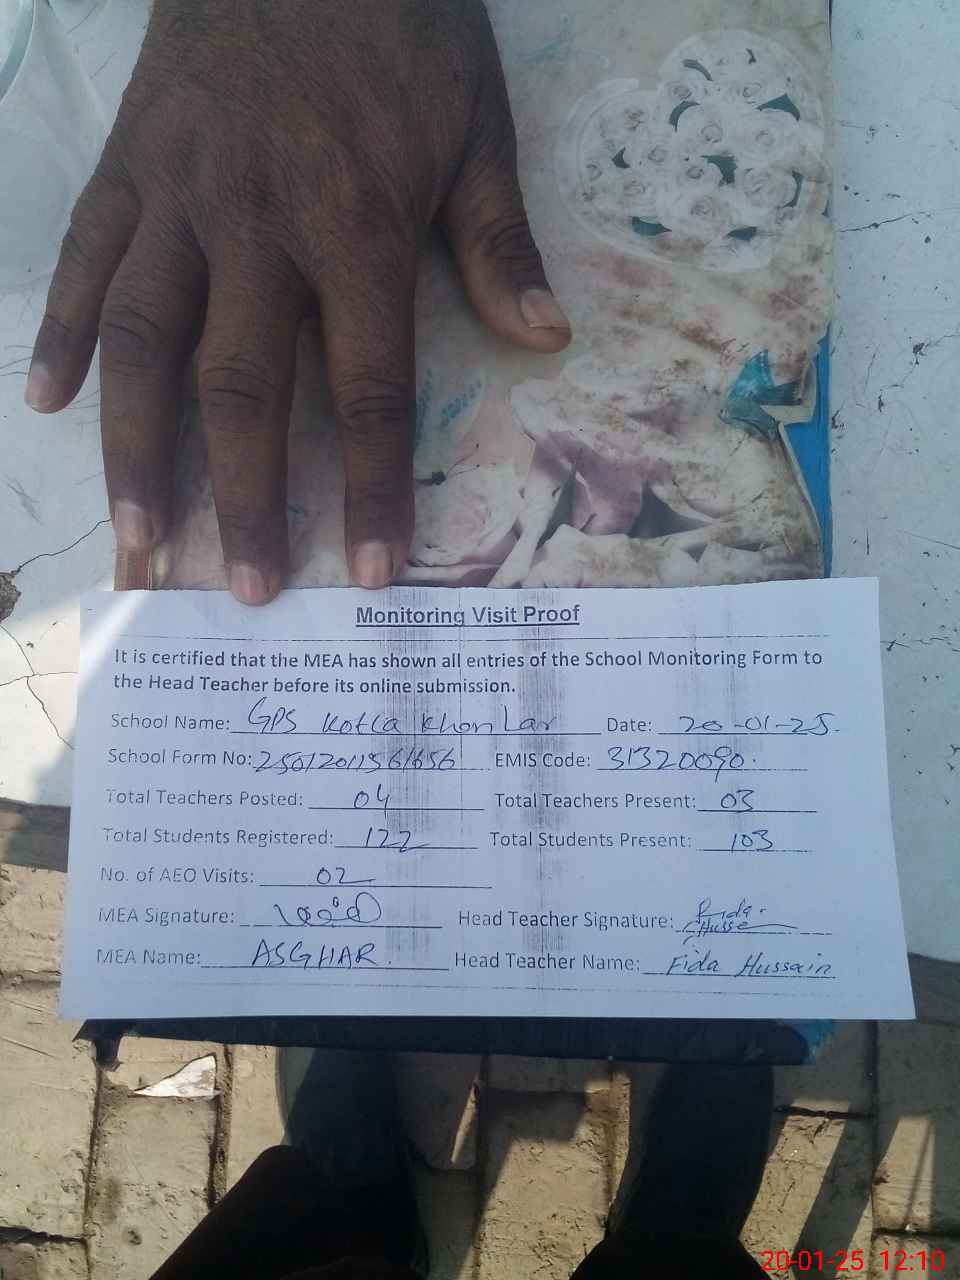 Monitoring Visit Proof
It is certified that the MEA has shown all entries of the School Monitoring Form to
the Head Teacher before its online submission.
School Name: GPS Kotla Khan Lar Date: 20-01-25.
School Form No: EMIS Code: 31320090.
Total Teachers Posted: 04 Total Teachers Present: 03
Total Students Registered: 122 Total Students Present: 103
No. of AEO Visits: 02
MEA Signature: Head Teacher Signature: Fida
MEA Name: ASGHAR. Head Teacher Name: Fida Hussain
20-01-25 12:10